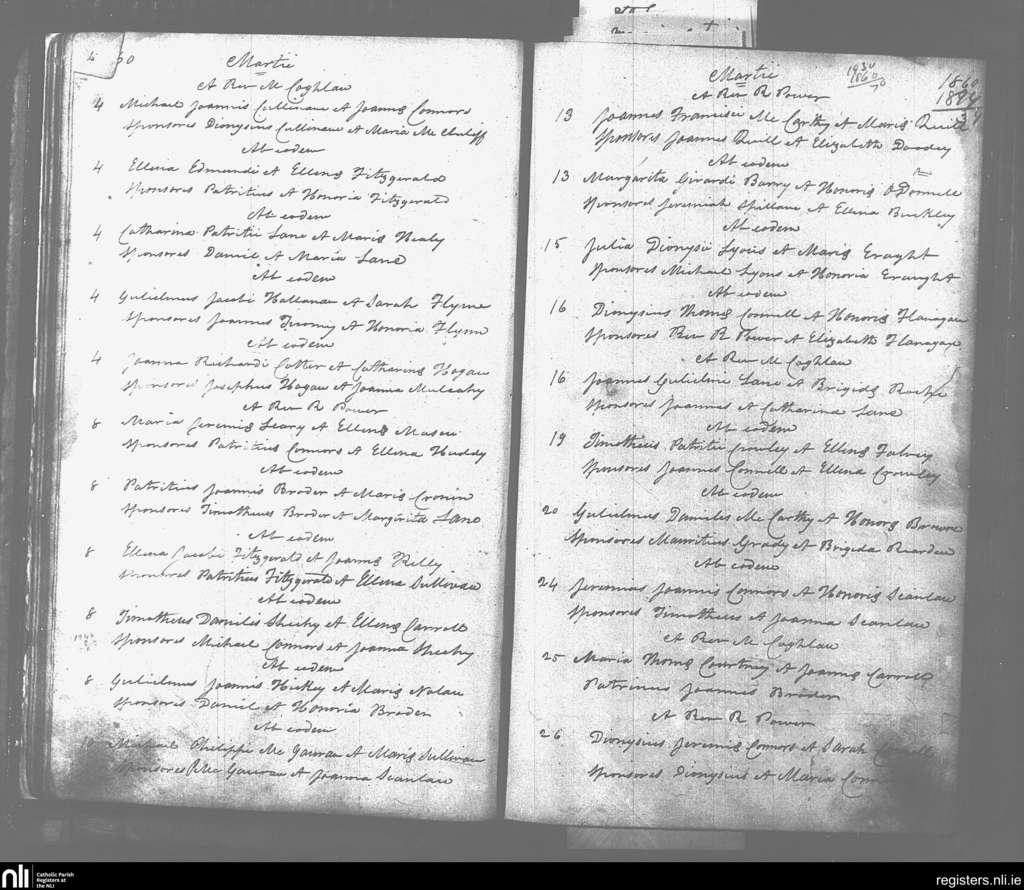 60
Martii
A Rev M Coghlan
4 Michael Joannis Cullinane et Joannæ Connors
Sponsores Dionysius Cullinane et Maria Mc
Ab eodem
4 Ellena Edmundi et Ellenæ Fitzgerald
Sponsores Patritius et Honoria Fitzgerald
Ab eodem
4 Catharina Patritii Lane et Mariæ Healy
Sponsores Daniel et Maria Lane
Ab eodem
4 Gulielmus Jacobi Hallanan et Sarah Flynn
Sponsores Joannes Twomy et Honoria Flynn
Ab eodem
4 Joanna Richardi Cotter et Catharinæ Hogan
Sponsores Josephus Hogan et Joanna Mulcahy
A Rev R Power
8 Maria Jeremiæ Leary et Ellenæ
Sponsores Patritius Connors et Ellena Huddy
Ab eodem
8 Patritius Joannis Broder et Mariæ Cronin
Sponsores Timotheus Broder et Margarita Lane
Ab eodem
8 Ellena Jacobi Fitzgerald et Joannæ Kelly
Sponsores Patritius Fitzgerald et Ellena Sullivan
Ab eodem
8 Timotheus Danielis Sheehy et Ellenæ Carroll
Sponsores Michael Connors et Joanna Sheehy
Ab eodem
8 Gulielmus Joannis Hickey et Mariæ Nolan
Sponsores Daniel et Honoria Broder
Ab eodem
10 Michael Philippi Mc Gauran et Mariæ Sullivan
Sponsores P Mc Gauran et Joanna Scanlan
Martii
A Rev R Power
1930
1860
70
1860
1894
34
13 Joannes Francisci Mc Carthy et Mariæ Quill
Sponsores Joannes Quill et Elizabeth Doody
Ab eodem
13 Margarita Girardi Barry et Honoriæ O'Donnell
Sponsores Jeremiah Spillane et Ellena Buckley
Ab eodem
15 Julia Dionysii Lyons et Mariæ Eraght
Sponsores Michael Lyons et Honoria Eraught
Ab eodem
16 Dionysius Thomæ Connell et Honoriæ Flanagan
Sponsores Rev R Power et Elizabeth Flanagan
A Rev M Coghlan
16 Joannes Gulielmi Lane et Brigidæ Roche
Sponsores Joannes et Catharina Lane
Ab eodem
19 Timotheus Patritii Crowley et Ellenæ Falvey
Sponsores Joannes Connell et Ellena Crowley
Ab eodem
20 Gulielmus Danielis Mc Carthy et Honoræ Browne
Sponsores Mauritius Grady et Brigida Reardon
Ab eodem
24 Jeremias Joannis Connors et Honoriæ Scanlan
Sponsores Timotheus et Joanna Scanlan
A Rev M Coghlan
25 Maria Thomæ Courtney et Joannæ Carroll
Patrinus Joannes Broder
A Rev R Power
26 Dionysius Jeremiæ Connors et Sarah
Sponsores Dionysius et Maria
nli
Catholic Parish
Registers at
the NLI
registers.nli.ie